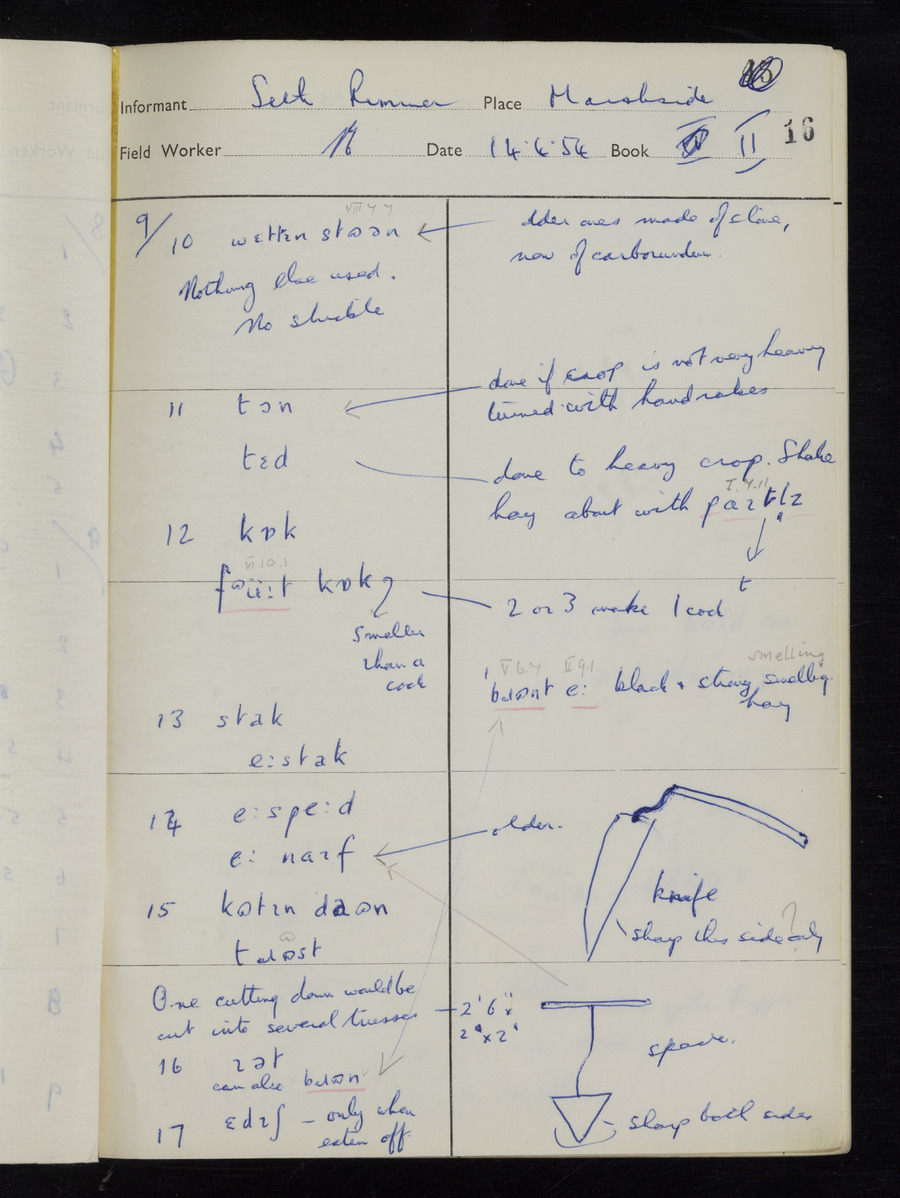 Informant Seth Rimmer Place Marshside
Field Worker Date 14.4.54 Book II 16
9/
VIII 7 7
10 wɛtɪn stʊən
older ones made of stone,
now of carborundum.
Nothing else used.
No
11 tən
done if crop is not very heavy
turned with hand rakes
tɛd
done to heavy crop. Shake
I.7.11
hay about with
t
12 kɒk
VI 10.1
kɒk
2 or 3 make 1 cock
smaller
than a
cock
V 6.7 II 9.1 smelling
e: black & strong smelling
hay
13 stak
e:stak
14 e:spe:d
older.
e: naɪf
15 kʊtɪn daʊn
knife
sharp this side only ?
One cutting down would be
cut into several trusses
2' 6" x
2" x 2"
spade.
16 rət
can also
17 ɛdɪʃ – only when
eaten off.
sharp both sides